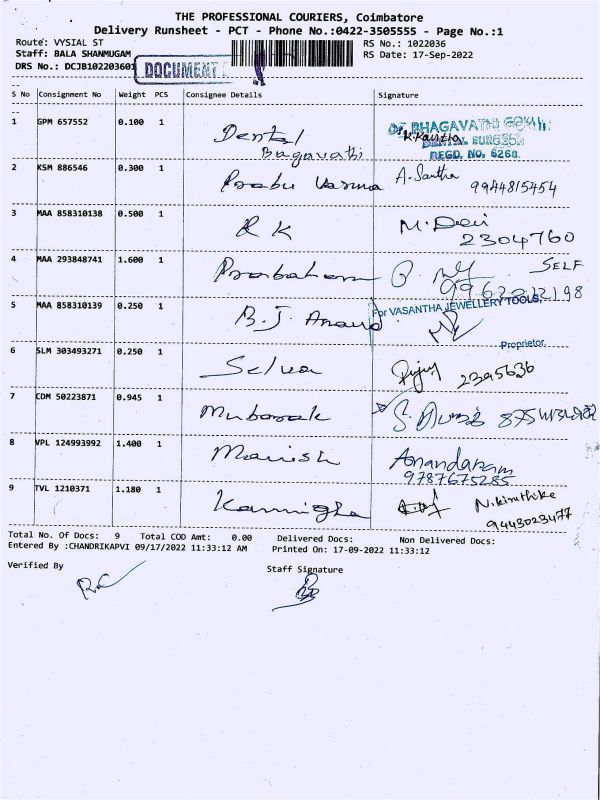 THE PROFESSIONAL COURIERS, Coimbatore
Delivery Runsheet - PCT - Phone No.:0422-3505555 - Page No.:1
Route: VYSIAL ST RS No.: 1022036
Staff: BALA SHANMUGAM RS Date: 17-Sep-2022
DRS No.: DCJB102203601 DOCUMENT
S No Consignment No Weight PCS Consignee Details Signature
1 GPM 657552 0.100 1 Dental Bagavathi Dr. BHAGAVATHI
K. Kavitha
DENTAL SURGEON
REGD. No. 6260
2 KSM 886546 0.300 1 Prabu Varma A. Santha 9944815454
3 MAA 858310138 0.500 1 R K M. Devi
2304760
4 MAA 293848741 1.600 1 Prabaharan SELF
5 MAA 858310139 0.250 1 B.J. Anand For VASANTHA JEWELLERY TOOLS,
Proprietor
6 SLM 303493271 0.250 1 Selva 2395636
7 CDM 50223871 0.945 1 Mubarak
8 VPL 124993992 1.400 1 Manish Anandaram
9787675285
9 TVL 1210371 1.180 1 N. Kiruthike
9443023477
Total No. Of Docs: 9 Total COD Amt: 0.00 Delivered Docs: Non Delivered Docs:
Entered By :CHANDRIKAPVI 09/17/2022 11:33:12 AM Printed On: 17-09-2022 11:33:12
Verified By Staff Signature